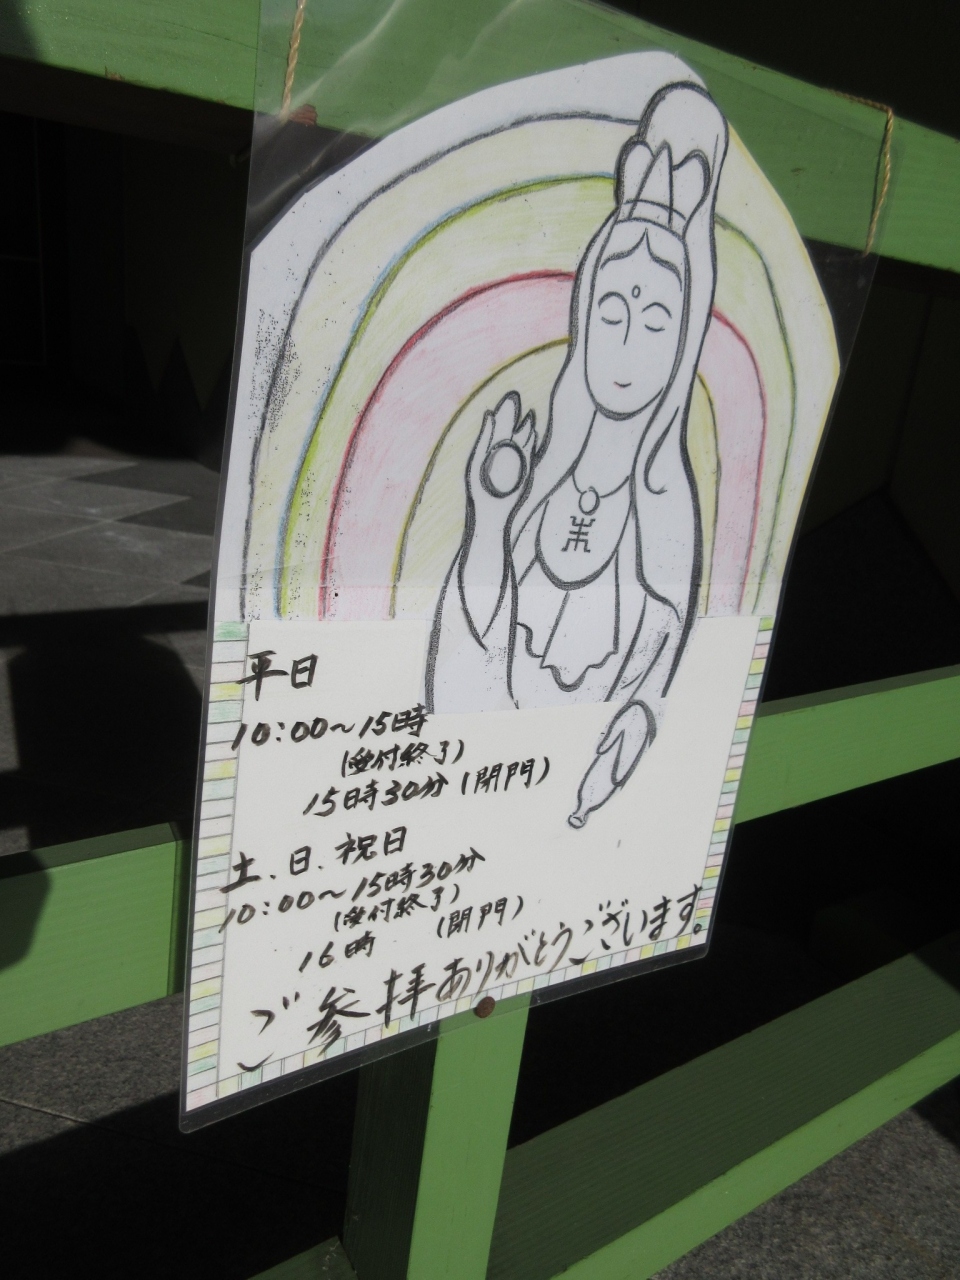 平日
10:00～15時
(受付終了)
15時30分(閉門)
土、日、祝日
10:00～15時30分
(受付終了)
16時 (閉門)
ご参拝ありがとうございます。